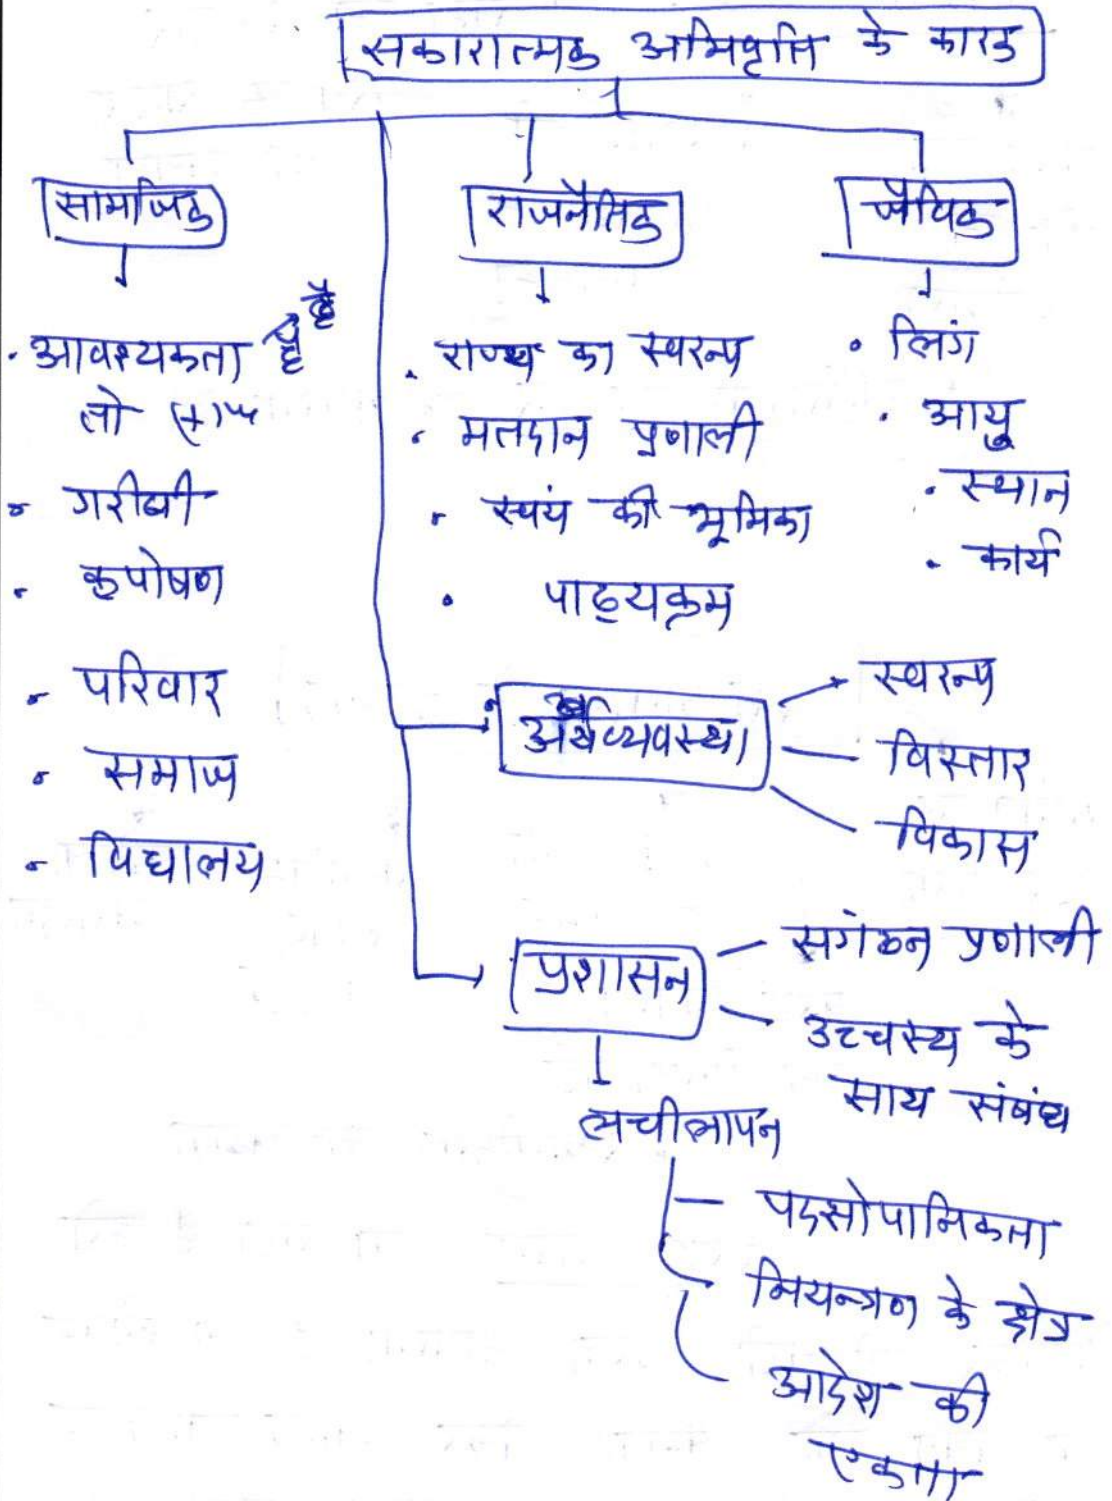 सकारात्मक अभिवृत्ति के कारक
सामाजिक
राजनैतिक
जैविक
आवश्यकता है
तो (+)ve
गरीबी
कुपोषण
परिवार
समाज
विद्यालय
राज्य का स्वरूप
मतदान प्रणाली
स्वयं की भूमिका
पाठ्यक्रम
लिंग
आयु
स्थान
कार्य
अर्थव्यवस्था
स्वरूप
विस्तार
विकास
प्रशासन
सगंठन प्रणाली
उच्चस्थ के
साथ संबंध
लचीलापन
पदसोपानिकता
नियन्त्रण के क्षेत्र
आदेश की
एकता